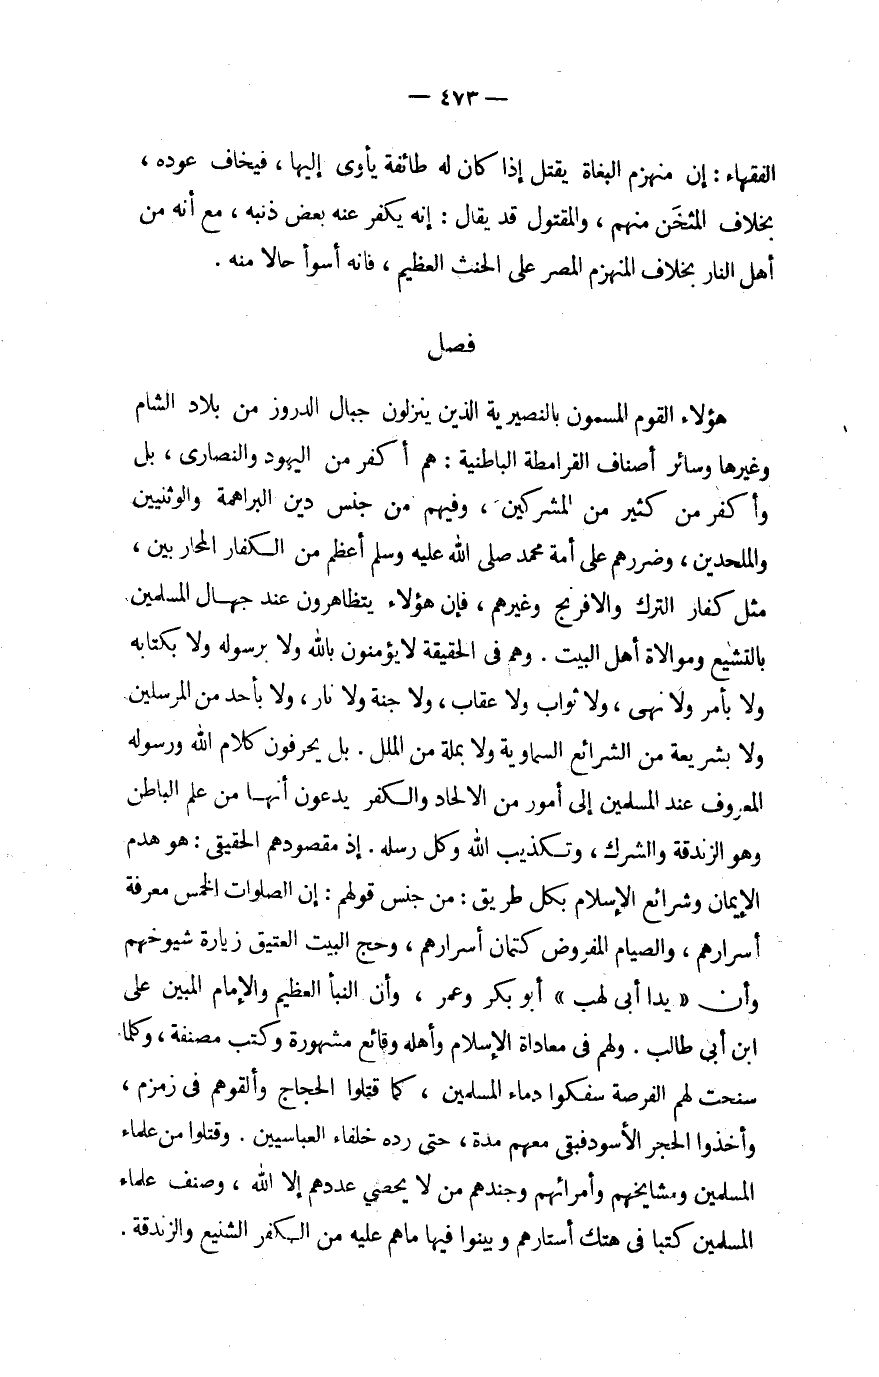 — ٤٧٣ —
الفقهاء : إن منهزم البغاة يقتل إذا كان له طائفة يأوى إليها ، فيخاف عوده ،
بخلاف المثخَن منهم ، والمقتول قد يقال : إنه يكفر عنه بعض ذنبه ، مع أنه من
أهل النار بخلاف المنهزم المصر على الحنث العظيم ، فانه أسوأ حالا منه .
فصل
هؤلاء القوم المسمون بالنصيرية الذين ينزلون جبال الدروز من بلاد الشام
وغيرها وسائر أصناف القرامطة الباطنية : هم أكفر من اليهود والنصارى ، بل
وأكفر من كثير من المشركين ، وفيهم من جنس دين البراهمة والوثنيين
والملحدين ، وضررهم على أمة محمد صلى الله عليه وسلم أعظم من الكفار المحاربين ،
مثل كفار الترك والافرنج وغيرهم ، فإن هؤلاء يتظاهرون عند جهال المسلمين
بالتشيع وموالاة أهل البيت . وهم فى الحقيقة لا يؤمنون بالله ولا برسوله ولا بكتابه
ولا بأمر ولا نهى ، ولا ثواب ولا عقاب ، ولا جنة ولا نار ، ولا بأحد من المرسلين
ولا بشريعة من الشرائع السماوية ولا بملة من الملل . بل يحرفون كلام الله ورسوله
المعروف عند المسلمين إلى أمور من الالحاد والكفر يدعون أنها من علم الباطن
وهو الزندقة والشرك ، وتكذيب الله وكل رسله . إذ مقصودهم الحقيقى : هو هدم
الإيمان وشرائع الإسلام بكل طريق : من جنس قولهم : إن الصلوات الخمس معرفة
أسرارهم ، والصيام المفروض كتمان أسرارهم ، وحج البيت العتيق زيارة شيوخهم
وأن « يدا أبى لهب » أبو بكر وعمر ، وأن النبأ العظيم والإمام المبين على
ابن أبي طالب . ولهم فى معاداة الإسلام وأهله وقائع مشهورة وكتب مصنفة ، وكلما
سنحت لهم الفرصة سفكوا دماء المسلمين ، كما قتلوا الحجاج وألقوهم فى زمزم ،
وأخذوا الحجر الأسود فبقى معهم مدة ، حتى رده خلفاء العباسيين . وقتلوا من علماء
المسلمين ومشايخهم وأمرائهم وجندهم من لا يحصي عددهم إلا الله ، وصنف علماء
المسلمين كتبا فى هتك أستارهم وبينوا فيها ماهم عليه من الكفر الشنيع والزندقة .